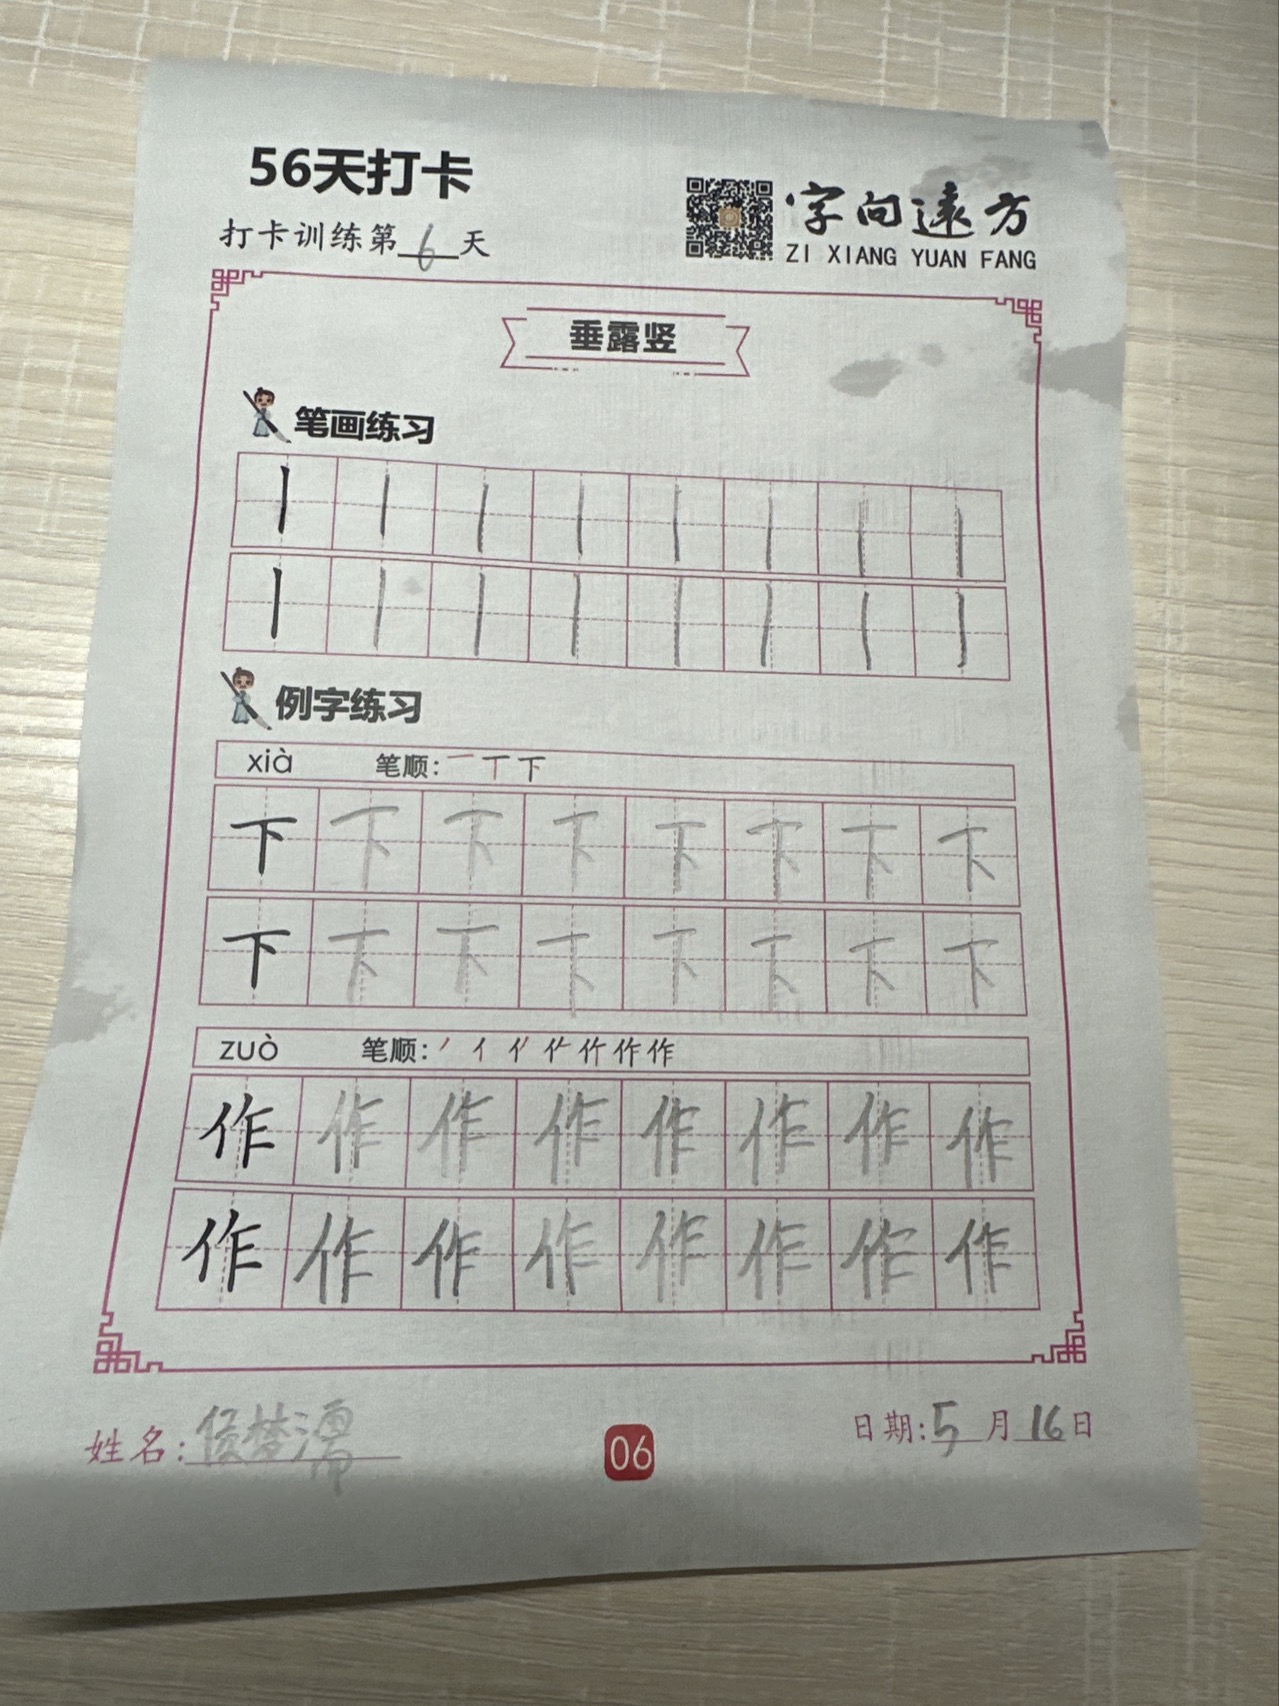 56天打卡
打卡训练第6天
字向远方
ZI XIANG YUAN FANG
垂露竖
笔画练习
丨丨丨丨丨丨丨丨
丨丨丨丨丨丨丨丨
例字练习
xià 笔顺:一丅下
下下下下下下下下
下下下下下下下下
zuò 笔顺:丿亻作作
作作作作作作作作
作作作作作作作作
姓名:侯梦
06
日期:5月16日